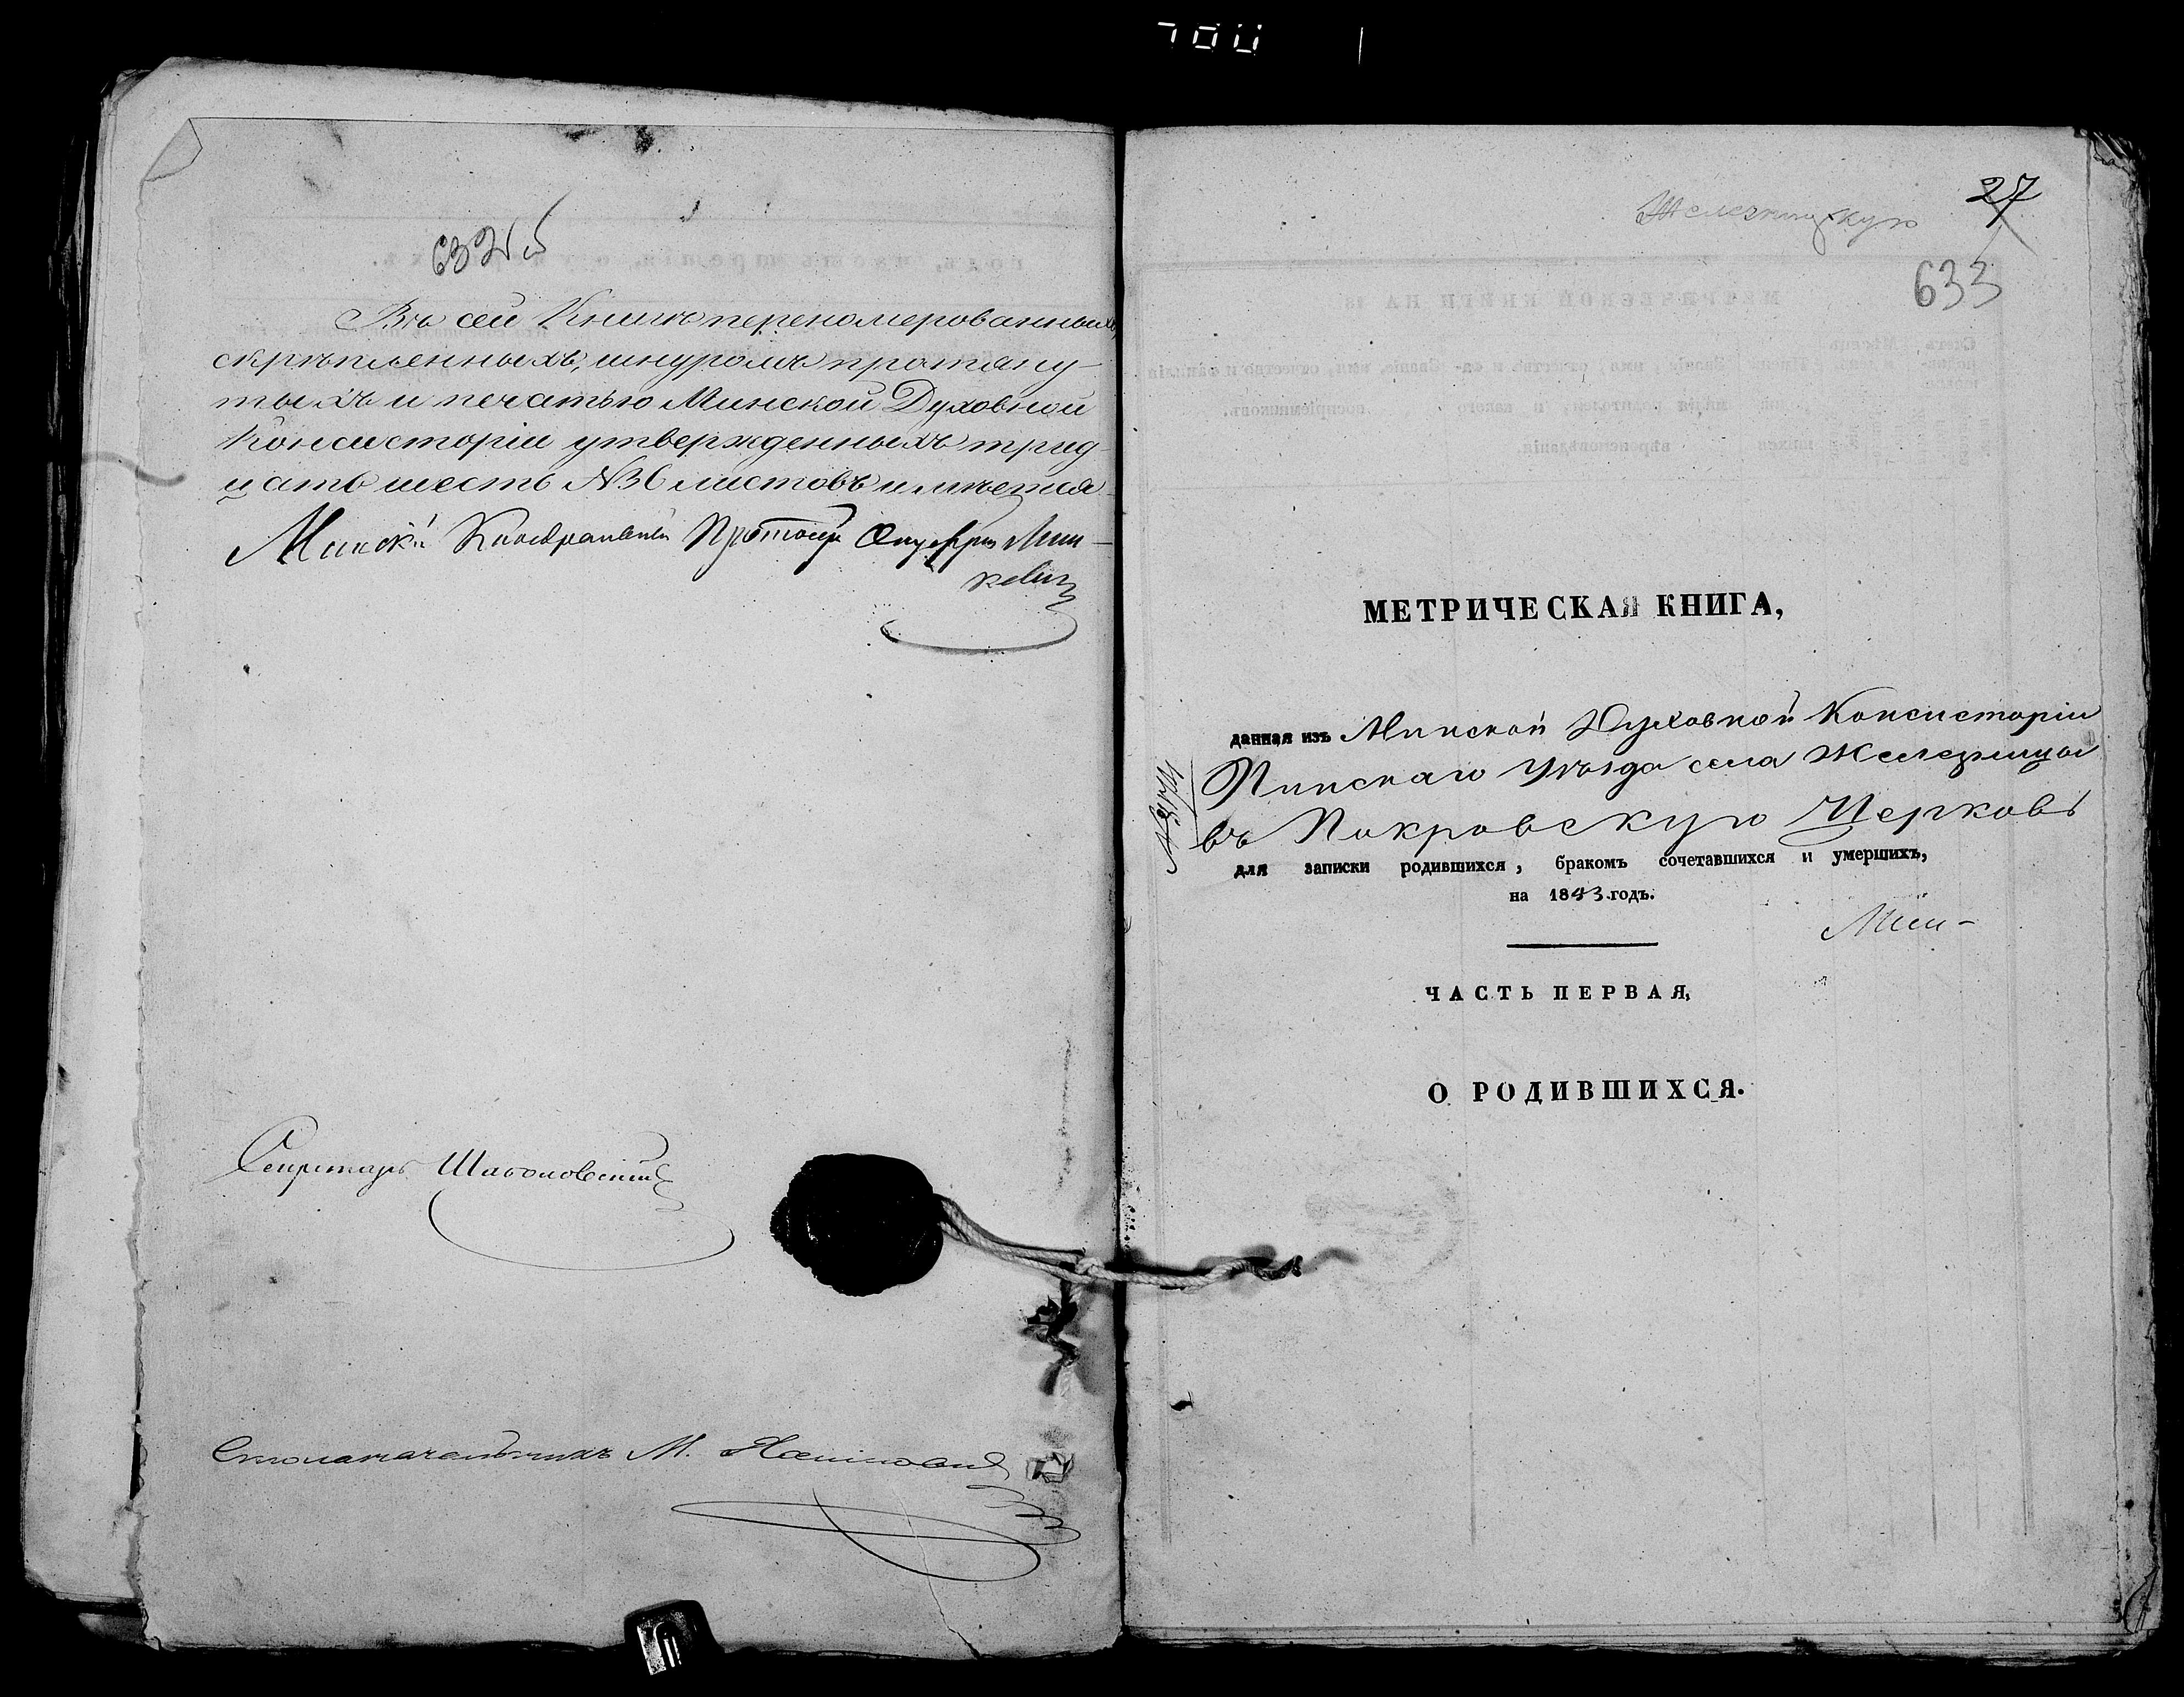 632 об
Въ сей Книгѣ перенумерованныхъ,
скрѣпленныхъ, шнуромъ протяну-
тыхъ и печатью Минской Духовной
Консисторіи утвержденныхъ трид-
цать шесть №36 листовъ имѣется
Минскій Каѳедральный
Секретарь
Столоначальникъ М.
27
Железницкую
633
МЕТРИЧЕСКАЯ КНИГА,
данная изъ Минской Духовной Консисторіи
Пинскаго Уѣзда села Железницы
въ Покровскую Церковь
для записки родившихся, бракомъ сочетавшихся и умершихъ,
на 1843 годъ.
Мин-
ЧАСТЬ ПЕРВАЯ,
О РОДИВШИХСЯ.